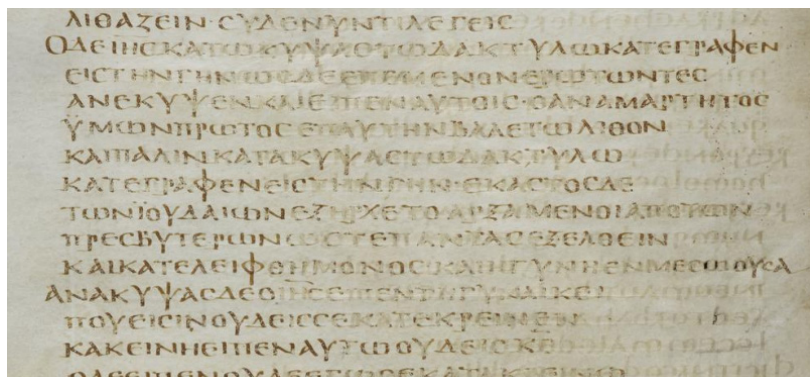 ΛΙΘΑΖΕΙΝ· ΣΥ ΔΕ ΝΥΝ ΤΙ ΛΕΓΕΙΣ
Ο ΔΕ ΙΗΣ ΚΑΤΩ ΚΥΨΑΣ ΤΩ ΔΑΚΤΥΛΩ ΚΑΤΕΓΡΑΦΕΝ
ΕΙΣ ΤΗΝ ΓΗΝ ΩΣ ΔΕ ΕΠΕΜΕΝΟΝ ΕΡΩΤΩΝΤΕΣ
ΑΝΕΚΥΨΕΝ ΚΑΙ ΕΙΠΕΝ ΑΥΤΟΙΣ· Ο ΑΝΑΜΑΡΤΗΤΟΣ
ΫΜΩΝ ΠΡΩΤΟΣ ΕΠ ΑΥΤΗΝ ΒΑΛΕΤΩ ΛΙΘΟΝ
ΚΑΙ ΠΑΛΙΝ ΚΑΤΑΚΥΨΑΣ ΤΩ ΔΑΚΤΥΛΩ
ΚΑΤΕΓΡΑΦΕΝ ΕΙΣ ΤΗΝ ΓΗΝ· ΕΚΑΣΤΟΣ ΔΕ
ΤΩΝ ΪΟΥΔΑΙΩΝ ΕΞΗΡΧΕΤΟ ΑΡΞΑΜΕΝΟΙ ΑΠΟ ΤΩΝ
ΠΡΕΣΒΥΤΕΡΩΝ ΩΣΤΕ ΠΑΝΤΑΣ ΕΞΕΛΘΕΙΝ
ΚΑΙ ΚΑΤΕΛΕΙΦΘΗ ΜΟΝΟΣ ΚΑΙ Η ΓΥΝΗ ΕΝ ΜΕΣΩ ΟΥΣΑ
ΑΝΑΚΥΨΑΣ ΔΕ Ο ΙΗΣ ΕΙΠΕΝ ΤΗ ΓΥΝΑΙΚΕΙ
ΠΟΥ ΕΙΣΙΝ ΟΥΔΕΙΣ ΣΕ ΚΑΤΕΚΡΕΙΝΕΝ
ΚΑΚΕΙΝΗ ΕΙΠΕΝ ΑΥΤΩ ΟΥΔΕΙΣ ΚΕ
Ο ΔΕ ΕΙΠΕΝ ΟΥΔΕ ΕΓΩ ΣΕ ΚΑΤΑΚΡΕΙΝΩ